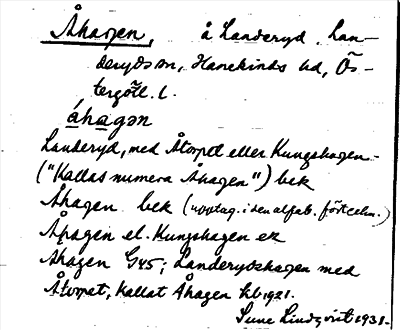 Åhagen, å Landeryd, Lan-
deryds sn, Hanekinds hd, Ös-
tergötl. l.
áhagən
Landeryd, med Åtorpet eller Kungshagen
("Kallas numera Åhagen") bek
Åhagen bek (upptag. i den alfab. förteckn.)
Åhagen el. Kungshagen ek
Åhagen G45; Landerydshagen med
Åtorpet, kallat Åhagen hb 1921.
Sune Lindqvist 1931.